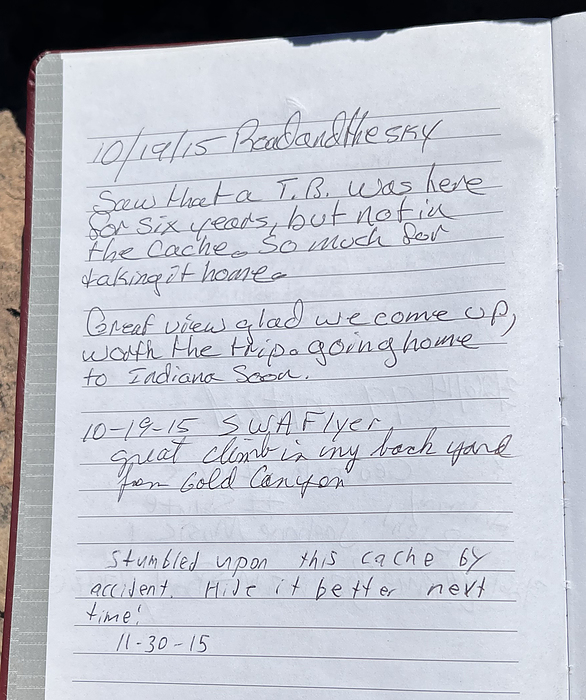 10/19/15 Roadandthesky
Saw that a T.B. was here
for six years, but not in
the cache. So much for
taking it home.
Great view glad we come up,
worth the trip. going home
to Indiana Soon.
10-19-15 SWAFlyer
great climb in my back yard
from Gold Canyon
Stumbled upon this cache by
accident. Hide it better next
time!
11-30-15